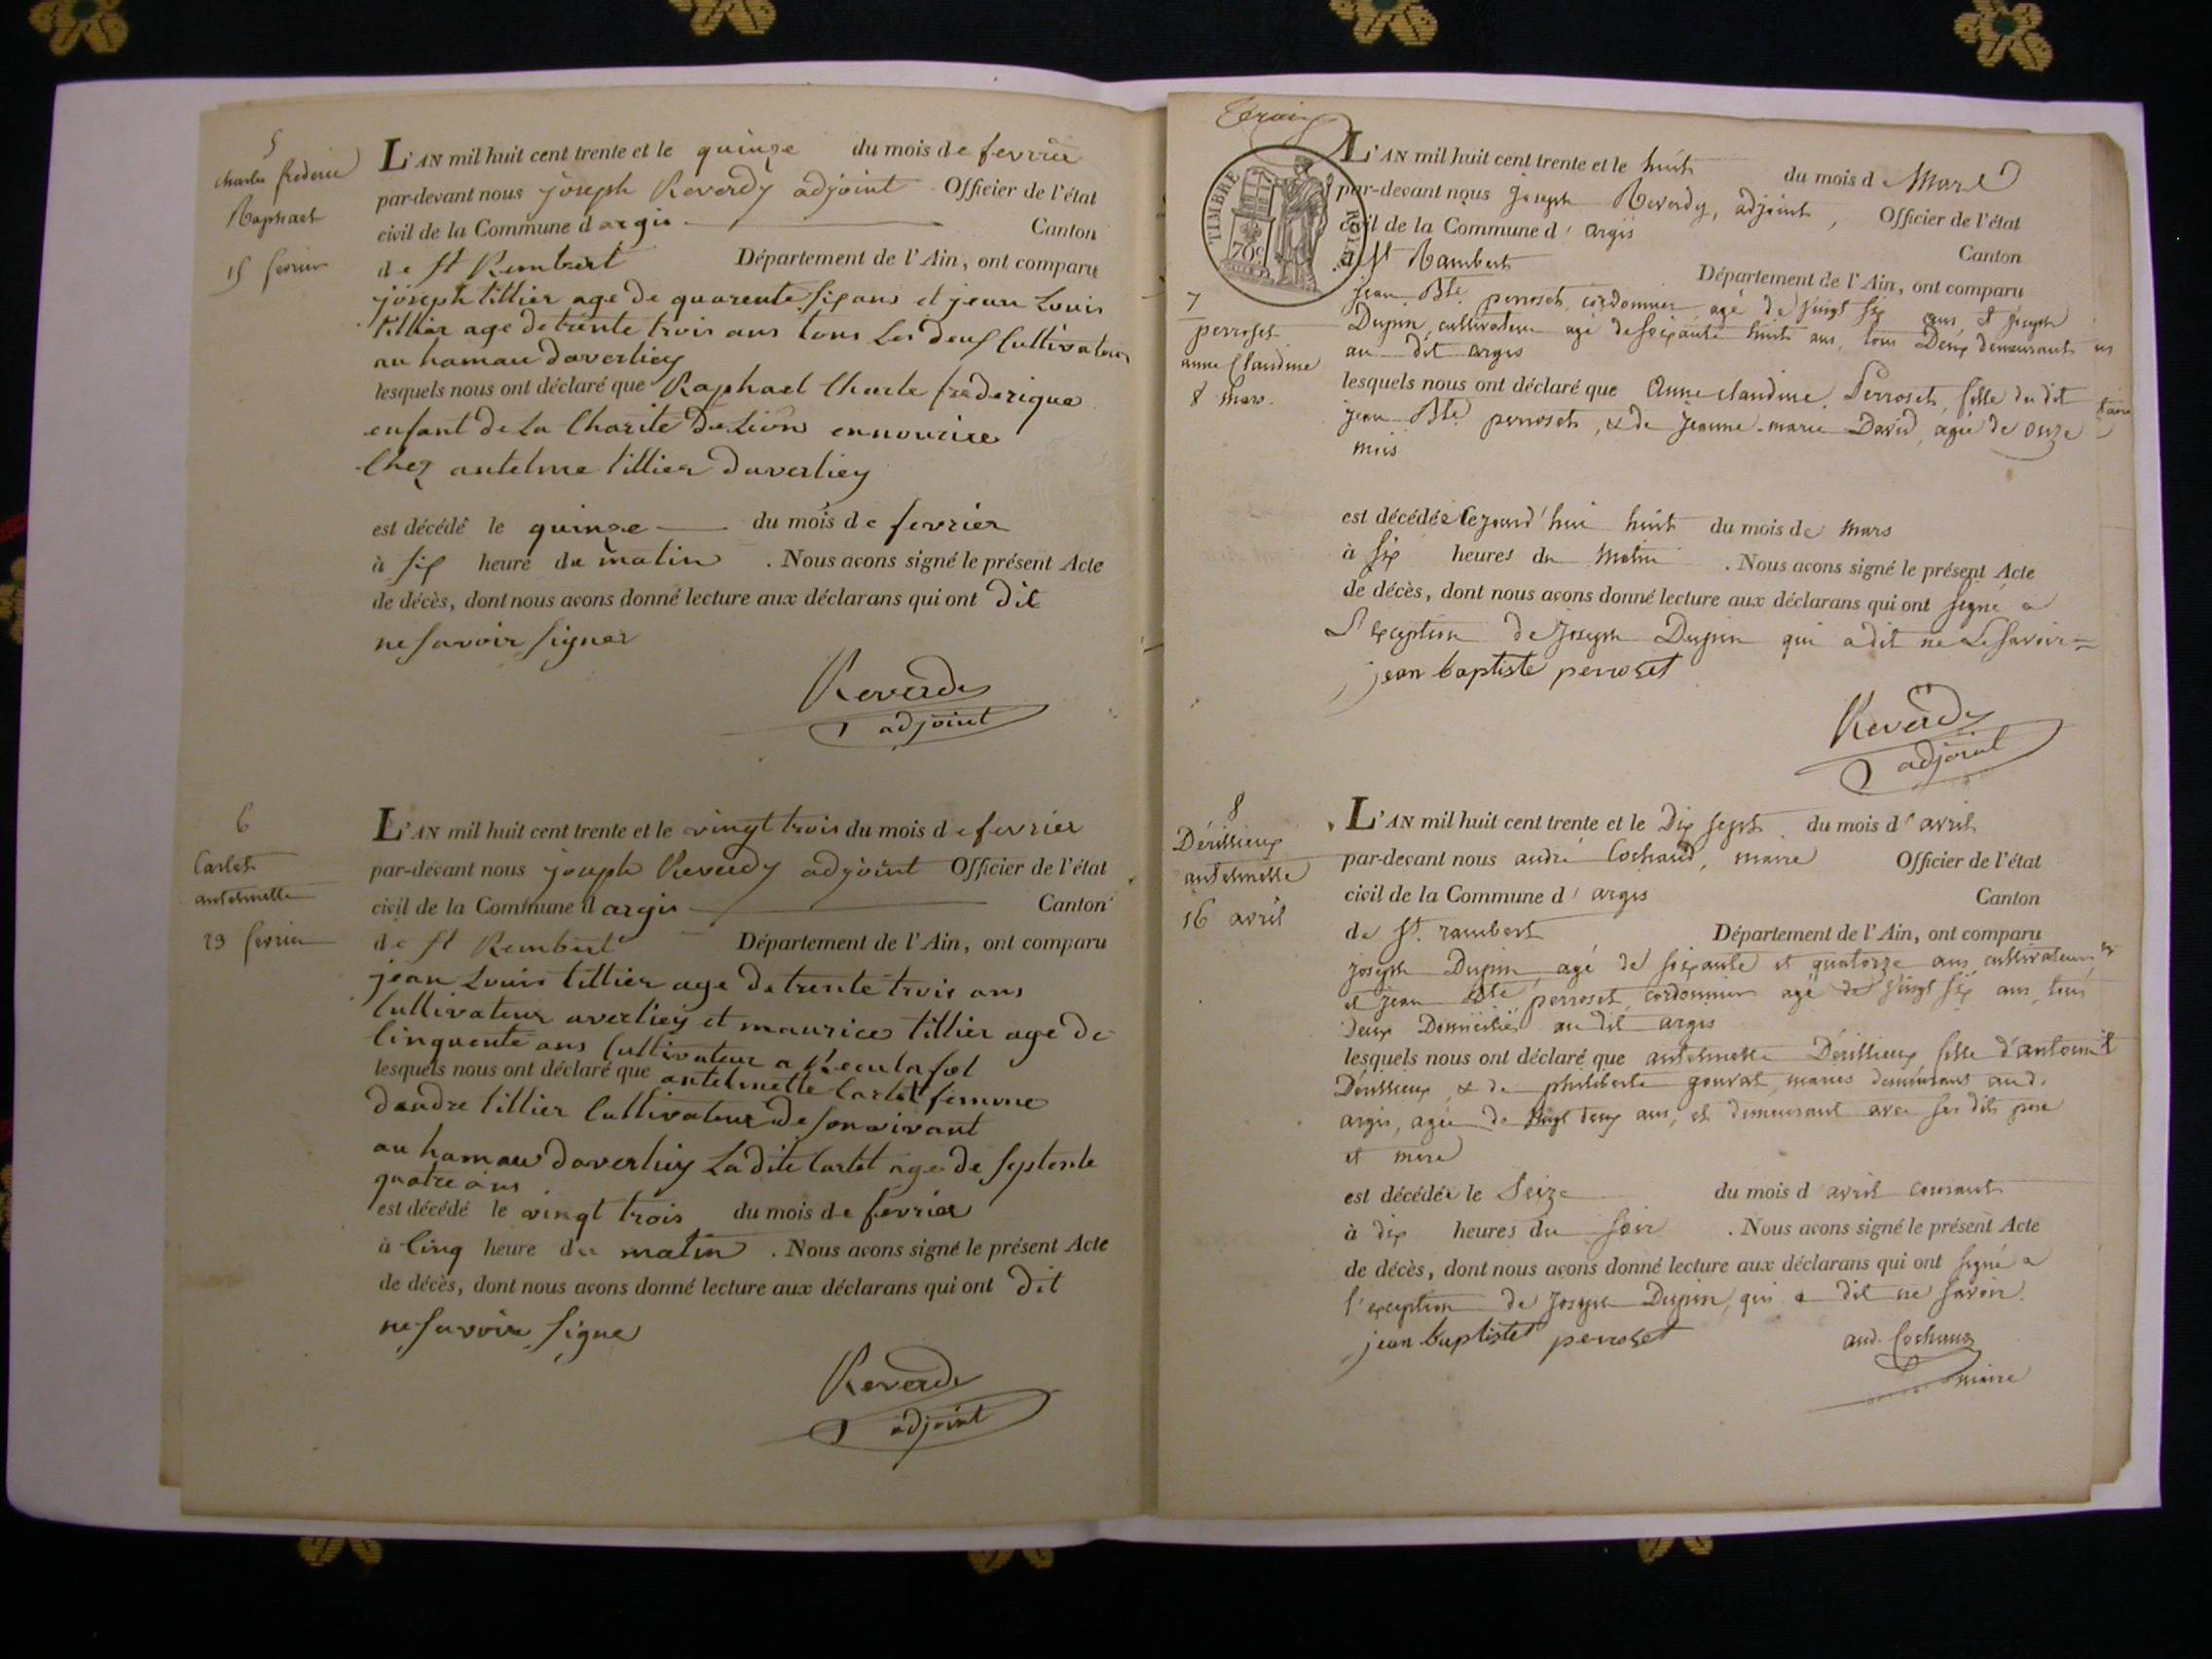 5
charles frederic
Raphael
15 fevrier
L'AN mil huit cent trente et le quinze du mois de fevrier
par-devant nous joseph Reverdy adjoint Officier de l'état
civil de la Commune d argis Canton
de st Rembert Département de l'Ain, ont comparu
joseph tillier age de quarente six ans et jean Louis
tillier age de trente trois ans tous Les deux Cultivateurs
au hamau daverliey
lesquels nous ont déclaré que Raphael Charle frederique
enfant de La Charite de Lion en nourice
Chez antelme tillier daverliey
est décédé le quinze du mois de fevrier
à six heure du matin . Nous avons signé le présent Acte
de décès, dont nous avons donné lecture aux déclarans qui ont dit
ne savoir signer
Reverdy
adjoint
6
Carlet
antelmette
23 fevrier
L'AN mil huit cent trente et le vingt trois du mois de fevrier
par-devant nous joseph Reverdy adjoint Officier de l'état
civil de la Commune d argis Canton
de st Rembert Département de l'Ain, ont comparu
jean Louis tillier age de trente trois ans
Cultivateur averliey et maurice tillier age de
Cinquente ans Cultivateur a Reculafol
lesquels nous ont déclaré que antelmette Carlet femme
dandre tillier Cultivateur de son vivant
au hamau daverliey La dite Carlet age de septente
quatre ans
est décédé le vingt trois du mois de fevrier
à Cinq heure du matin . Nous avons signé le présent Acte
de décès, dont nous avons donné lecture aux déclarans qui ont dit
ne savoir signe
Reverdy
adjoint
TIMBRE ROYAL
70c
L'AN mil huit cent trente et le huit du mois de Mars
par-devant nous joseph Reverdy, adjoint, Officier de l'état
civil de la Commune d' argis Canton
St Rambert Département de l'Ain, ont comparu
7
perroset
anne Claudine
8 mars.
jean Bte perroset, cordonnier, agé de vingt six ans, et joseph
Dupin, cultivateur agé de soixante huit ans, tous Deux demeurant
au dit argis
lesquels nous ont déclaré que Anne claudine Perroset, fille du dit
jean Bte perroset, & de jeanne-marie David, agée de onze
mois
est décédée Cejourd'hui huit du mois de mars
à six heures du matin . Nous avons signé le présent Acte
de décès, dont nous avons donné lecture aux déclarans qui ont signé a
L'exception de Joseph Dupin qui a dit ne Le savoir =
jean baptiste perroset
Reverdy
adjoint
8
Dérillieux
antelmette
16 avril
L'AN mil huit cent trente et le Dix sept du mois d' avril
par-devant nous andré Cochaud, maire Officier de l'état
civil de la Commune d' argis Canton
de St. rambert Département de l'Ain, ont comparu
joseph Dupin agé de soixante et quatorze ans cultivateur
et jean Bte perroset, cordonnier agé de vingt six ans, tous
Deux Domiciliés au dit argis
lesquels nous ont déclaré que antelmette Dérillieux fille d'antoine
Dérillieux, & de philiberte gouvat, mariés demeurant aud.
argis, agée de vingt deux ans, et demeurant avec ses dits père
et mere
est décédée le Seize du mois d avril courant
à dix heures du soir . Nous avons signé le présent Acte
de décès, dont nous avons donné lecture aux déclarans qui ont signé a
l'exception de Joseph Dupin, qui a dit ne savoir.
jean baptiste perroset
and. Cochaud
maire